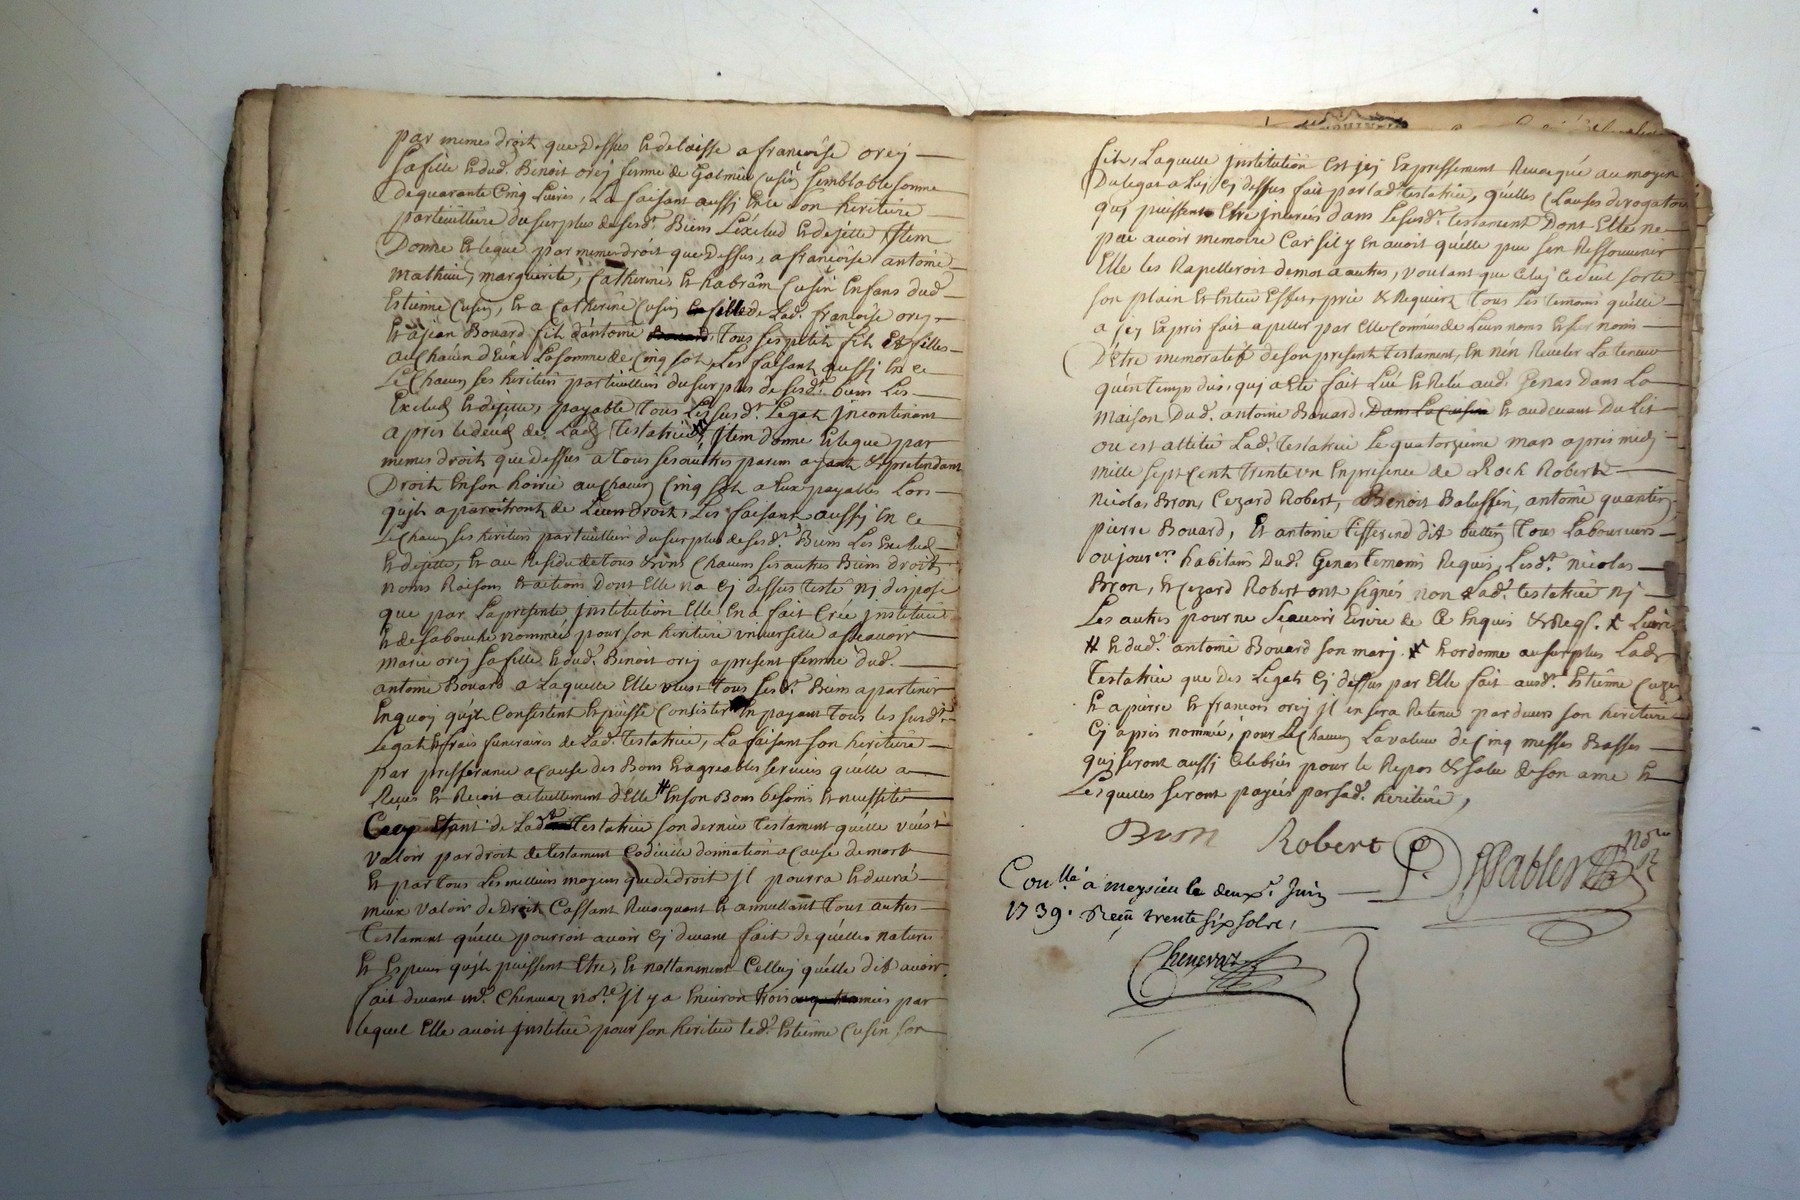 par memes droit que dessus & delaisse a francoise orcy
sa fille & dud. Benoit orcy femme de Galmier Cusin semblable somme
de quarante Cinq Livres, La faisant aussy en ce son heritiere
particulliere du surplus de sesd.t Biens L'exclud & dejette Item
Donne & legue par memes droit que dessus, a francoise antoine
mathieu, marguerite, Catherine & habram Cusin Enfans dud.
Estienne Cusin, & a Catherine Cusin fille de Lad. francoise orcy
& a jean Bouard fils d'antoine Tous ses petits fils & filles
au Chacun d'eux La somme de Cinq sols, Les faisant aussy en ce
Chacun ses heritiers particulliers du surplus de sesd.t biens Les
Exclud & dejette, payable Tous Les susd.t Legats incontinant
apres le deced de Lad. Testatrice, Item donne & legue par
memes droit que dessus a Tous ses autres parens & pretendant
Droit en son hoirie au Chacun Cinq sols a Eux payables Lors
qu'ils aparoitront de Leurs droit, Les faisant aussy en ce
Chacun ses heritiers particulliers du surplus de sesd.t Biens Les Exclud
& dejette, & au Residu de tous & uns Chacuns ses autres Biens droits
noms Raisons & actions Dont Elle na cy dessus testé ny disposé
que par La presente institution Elle En a fait Crée institue
& de sa bouche nommée pour son heritiere universelle a sçeavoir
marie orcy sa fille & dud. Benoit orcy a present femme dud.
antoine Bouard a Laquelle Elle veust Tous sesd.t Biens apartenir
En quoy qu'ils Consistent & puisse Consister En payant Tous les susd.t
Legats & frais funeraires de Lad. Testatrice, La faisant son heritiere
par presferance a cause des Bons & agreables services qu'elle a
Reçus & Recoit actuellement d'Elle # En son Bons besoins & necessité
Cecy Estant de Lad. Testatrice son dernier Testament qu'elle veust
valoir par droit de testament Codicille donnation a cause de mort
& par tous Les meilleurs moyens que de droit Il pourra & devra
mieux valoir de Droit Cassant Revocquant & annullant Tout autres
Testament qu'elle pourroit avoir Cy devant fait de quelles natures
& Espesses qu'ils puissent Etre, & nottanment Celluy qu'elle dit avoir
fait devant m.e Chenevaz no.re Il y a Environ trois années par
lequel Elle avoit institué pour son heritier led. Estienne Cusin son
fils, Laquelle institution Est icy Expressement Revocqué au moyen
Du legat a Luy cy dessus fait par lad. testatrice, qu'elles Clauses derogatoires
quy puissent Etre inserés dans Le susd. testament Dont Elle ne
peu avoir memoire Car sil y En avoit qu'elle peu sen Ressouvenir
Elle les Rapelleroit de mot a autres, voulant que Celuy Cy sorte
son plain & Entier Effet, prie & Requiert Tous Les temoins qu'elle
a icy Expres fait apeller par Elle Connus de Leurs noms & surnoms
D'Etre memoratif de son present Testament, En n'en Reveler La teneur
qu'en temps dus, quy a Eté fait Lu & Relu aud. Genas dans La
maison Dud. antoine Bouard, Dans La Cuisine & audevant Du Lit
ou est alittée Lad. Testatrice Le quatorzieme mars apres medy
mille sept Cent Trente un En presence de Roch Robert
Nicolas Bron, Cezard Robert, Benoit Balaffin, antoine quantin,
pierre Bouard, & antoine Tisserend dit buttin Tous Laboureurs
ou jour.ers habitans Dud. Genas temoins Requis, Lesd.t Nicolas
Bron, & Cezard Robert ont signés non Lad. testatrice ny
Les autres pour ne Sçeavoir Ecrire de Ce Enquis & Reqs.
# & dud. antoine Bouard son mary & ordonne au surplus Lad.
Testatrice que des Legats Cy dessus par Elle fait ausd.t Estienne Cuzin
& a pierre & francois orcy il en sera Retenu par devers son heritiere
Cy apres nommée, pour Chacun La valeur de Cinq messes Basses
quy seront aussy Celebrés pour le Repos & salut de son ame &
Lesquelles seront payées par sad. heritiere,
Bron Robert
Coullé a meysieu le deux.e Juin
1739. Receu trente six sols,
Chenevaz